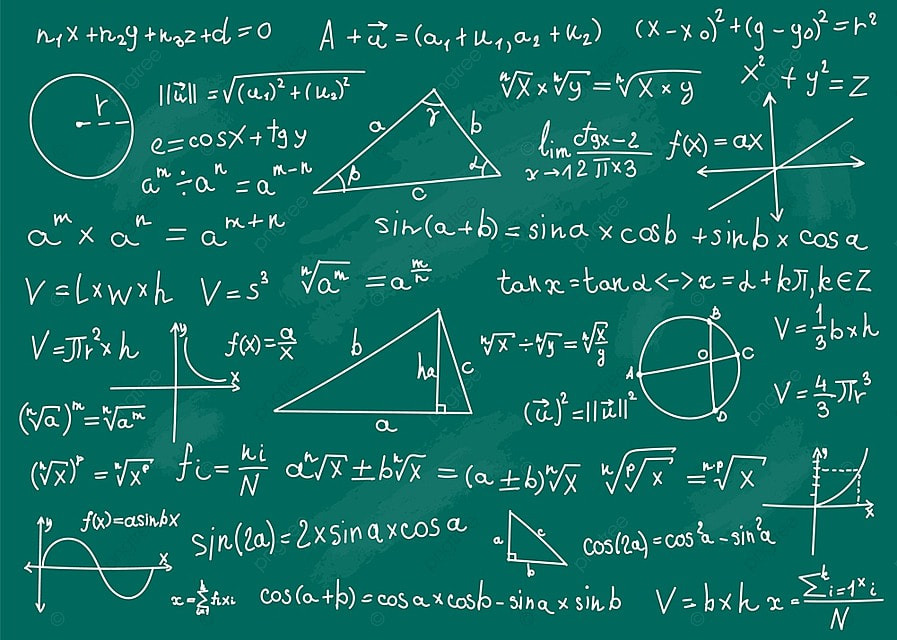 n₁x + n₂y + n₃z + d = 0
A + u⃗ = (a₁ + u₁, a₂ + u₂)
(x - x₀)² + (y - y₀)² = r²
r
||u⃗|| = √((u₁)² + (u₂)²)
ⁿ√x × ⁿ√y = ⁿ√(x × y)
x² + y² = z
e = cosx + tgy
a β γ b α c
lim x→1 (ctgx - 2)/(2π×3)
f(x) = ax
aᵐ ÷ aⁿ = aᵐ⁻ⁿ
aᵐ × aⁿ = aᵐ⁺ⁿ
sin(a+b) = sina × cosb + sinb × cosa
V = L×w×h
V = s³
ⁿ√(aᵐ) = a^(m/n)
tanx = tanα <-> x = α + kπ, k ∈ Z
V = πr² × h
y x
f(x) = a/x
b ha c a
ⁿ√x ÷ ⁿ√y = ⁿ√(x/y)
A B C D O
V = 1/3 b×h
(ⁿ√a)ᵐ = ⁿ√(aᵐ)
(u⃗)² = ||u⃗||²
V = 4/3 πr³
(ⁿ√x)ᵖ = ⁿ√(xᵖ)
fi = ni/N
aⁿ√x ± bⁿ√x = (a ± b)ⁿ√x
ⁿ√(ᵖ√x) = ⁿ·ᵖ√x
y x
y x
f(x) = asinbx
sin(2a) = 2×sina×cosa
a c b
cos(2a) = cos²a - sin²a
x = Σ(i=1, k) fixi
cos(a+b) = cosa × cosb - sina × sinb
V = b×h
x = (Σᵏi=1ˣi)/N